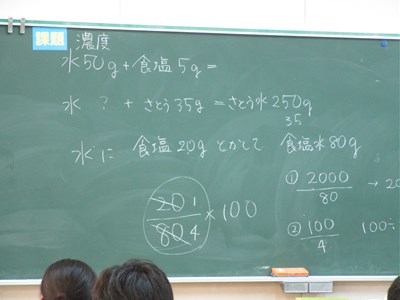 課題 濃度
水50g+食塩5g=
水 ? +さとう35g=さとう水250g
35
水に 食塩20gとかして 食塩水80g
20 1
80 4
×100
① 2000
80
→ 20
② 100
4
100÷